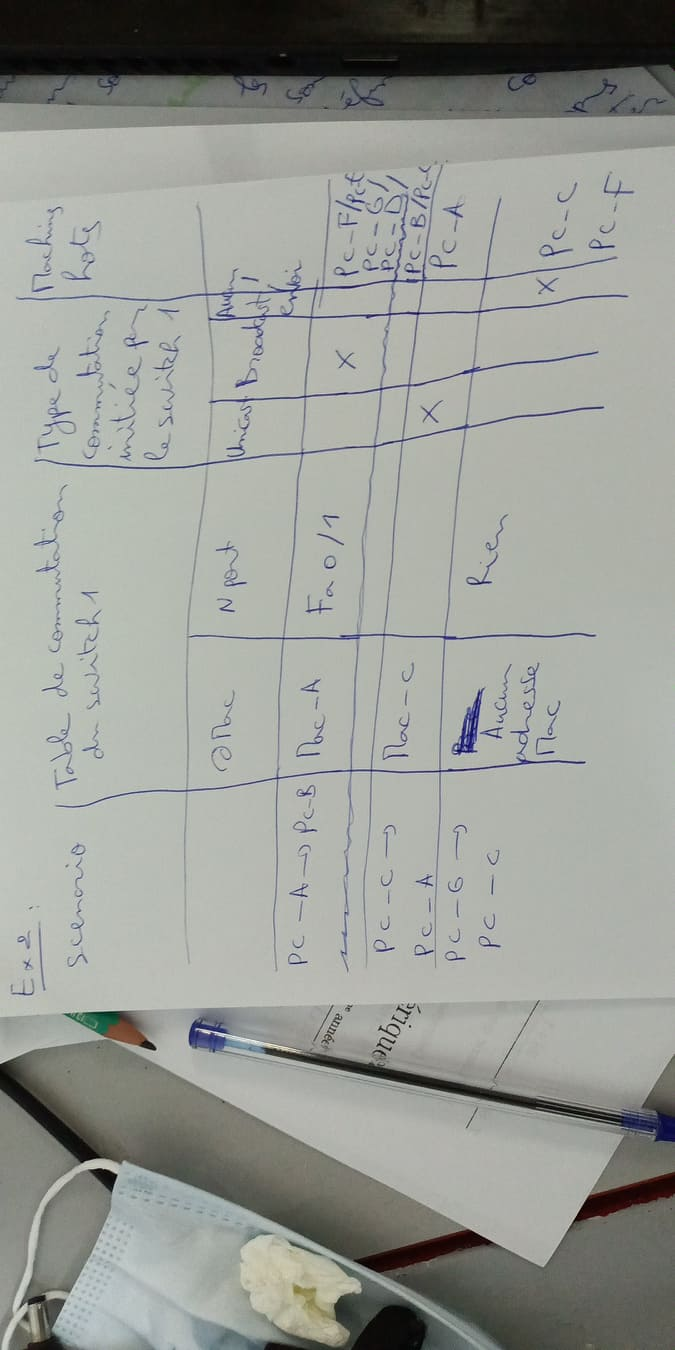 Ex 2 :
Scenario
Table de commutation
du switch 1
Type de
commutation
initiée par
le switch 1
Maching
hots
@Mac
N port
Unicast
Broadcast
Aucun
envoi
PC-A → PC-B
Mac-A
Fa0/1
X
PC-F/PC-E
PC-G/
PC-D/
PC-B/PC-C
PC-C →
PC-A
Mac-C
X
PC-A
PC-G →
PC-C
Aucun
adresse
Mac
Rien
X
PC-C
PC-F
érique
année